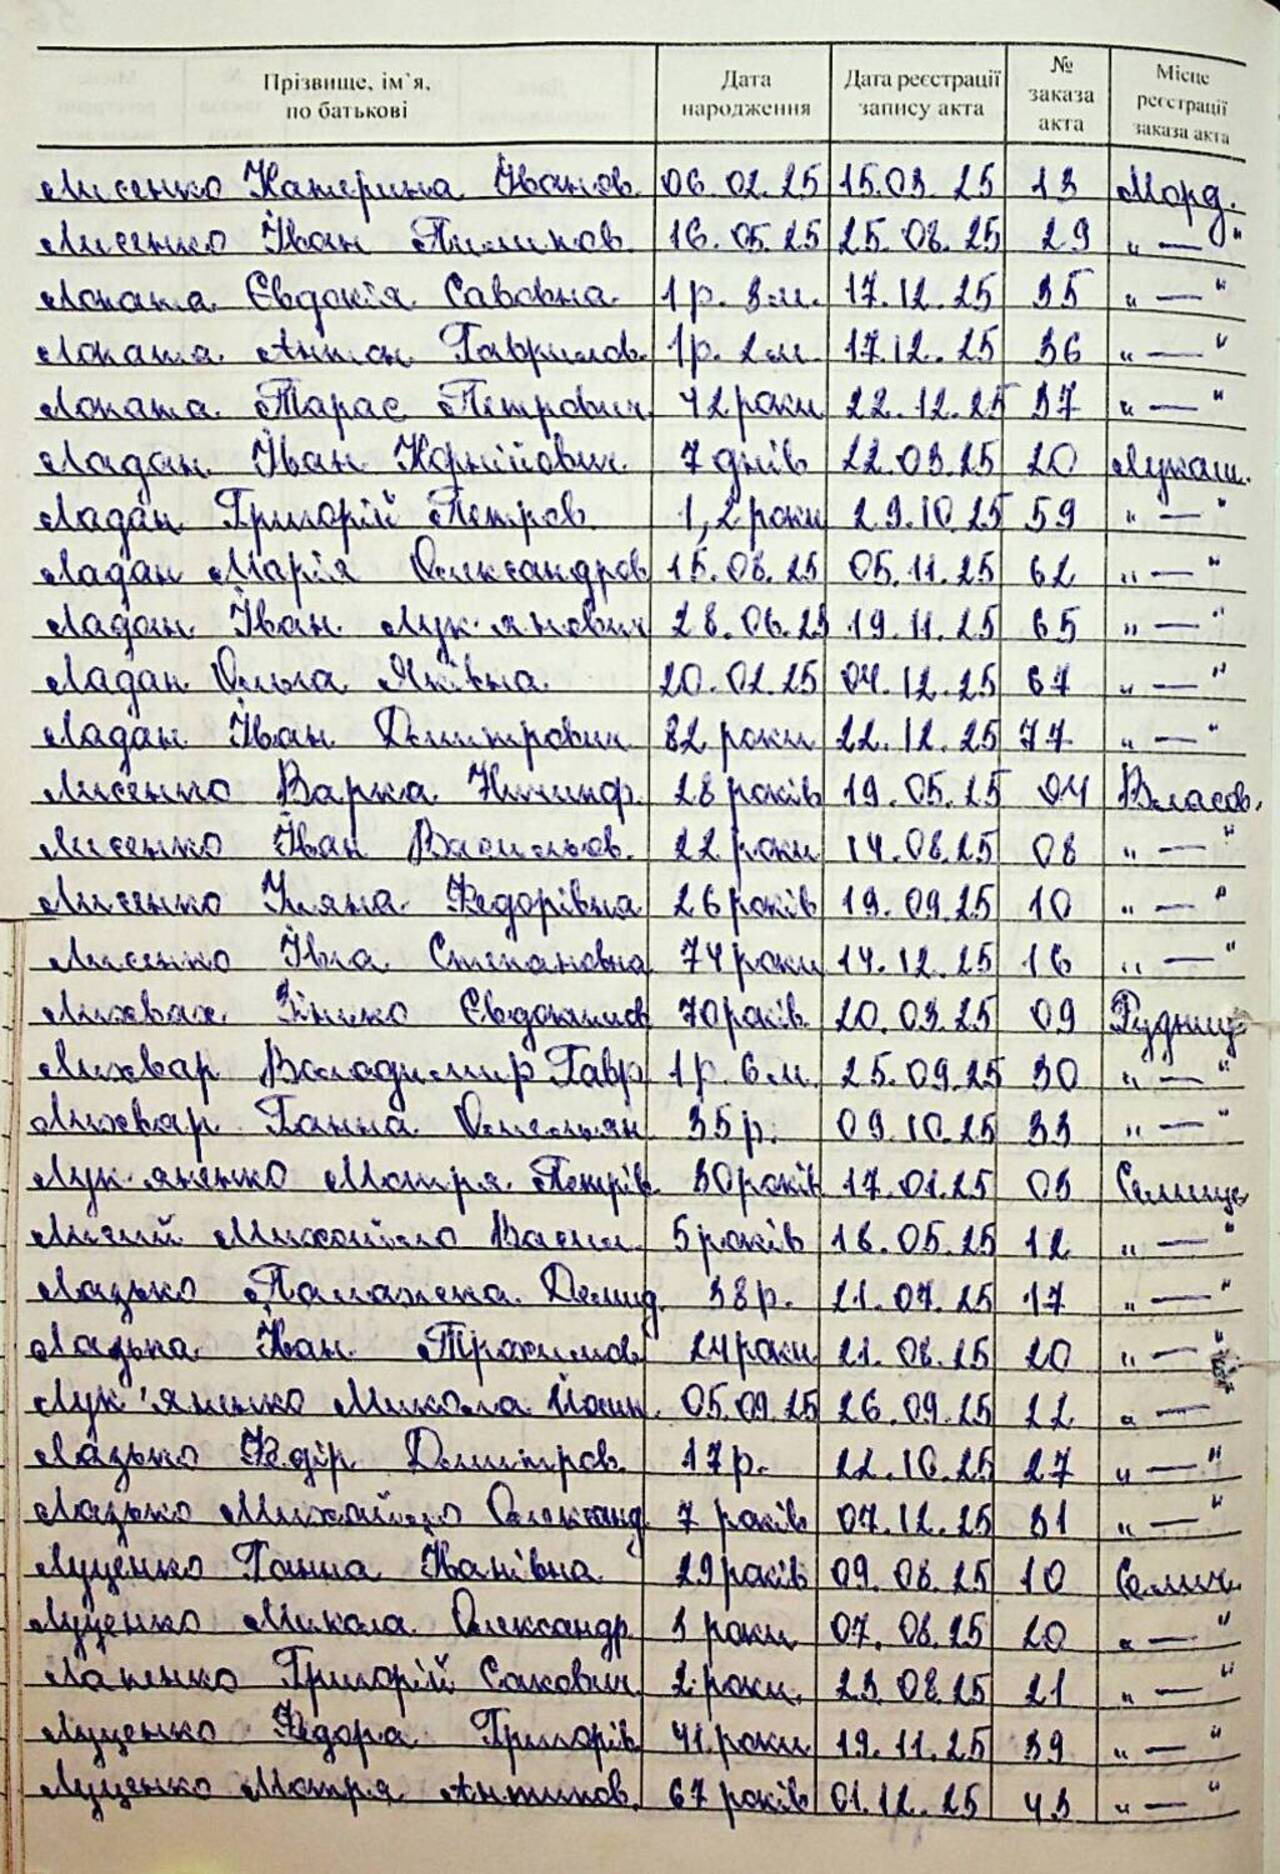 Прізвище, ім`я, по батькові | Дата народження | Дата реєстрації запису акта | № заказа акта | Місце реєстрації заказа акта
Лисенко Катерина Іванов. 06.02.25 15.03.25 13 Морд.
Лисенко Іван Пилипов. 16.05.25 25.08.25 29 „ — "
Лопата Євдокія Савовна 1р. 3м. 17.12.25 35 „ — "
Лопата Антон Гаврилов. 1р. 2м. 17.12.25 36 „ — "
Лопата Тарас Петрович 42 роки 22.12.25 37 „ — "
Ладан Іван Корнійович 7 днів 22.03.25 20 Лукаш.
Ладан Григорій Петров. 1,2 роки 29.10.25 59 „ — "
Ладан Марія Олександров 15.08.25 05.11.25 62 „ — "
Ладан Іван Лук'янович 28.06.25 19.11.25 65 „ — "
Ладан Ольга Яківна 20.02.25 04.12.25 67 „ — "
Ладан Іван Дмитрович 82 роки 22.12.25 77 „ — "
Лисенко Варка Ничипф. 28 років 19.05.25 04 Власов.
Лисенко Іван Васильов. 22 роки 14.08.25 08 „ — "
Лисенко Уляна Федорівна 26 років 19.09.25 10 „ — "
Лисенко Івга Степановна 74 роки 14.12.25 16 „ — "
Лихвах Зінько Євдокимов 70 років 20.03.25 09 Рудниц
Лихвар Володимир Гавр 1р. 6м. 25.09.25 30 „ — "
Лихвар Ганна Омельян 35р. 09.10.25 33 „ — "
Лук'яненко Мотря Петрів 30 років 17.01.25 03 Селище
Лисий Михайло Васил. 5 років 18.05.25 12 „ — "
Лазько Палажека Демид. 38р. 21.07.25 17 „ — "
Лазька Іван Трохимов 24 роки 21.08.25 20 „ — "
Лук'яненко Микола Йоhип. 05.09.25 26.09.25 22 „ — "
Лазько Федір Дмитров. 17р. 22.10.25 27 „ — "
Лазько Михайло Олександ 7 років 07.12.25 31 „ — "
Луценко Ганна Іванівна 29 років 09.08.25 10 Селич.
Луценко Микола Олександр. 3 роки 07.08.25 20 „ — "
Лапенко Григорій Сакович 2 роки. 23.08.25 21 „ — "
Луценко Федора Григорів 41 роки 19.11.25 39 „ — "
Луценко Мотря Антипов. 67 років 01.12.25 43 „ — "